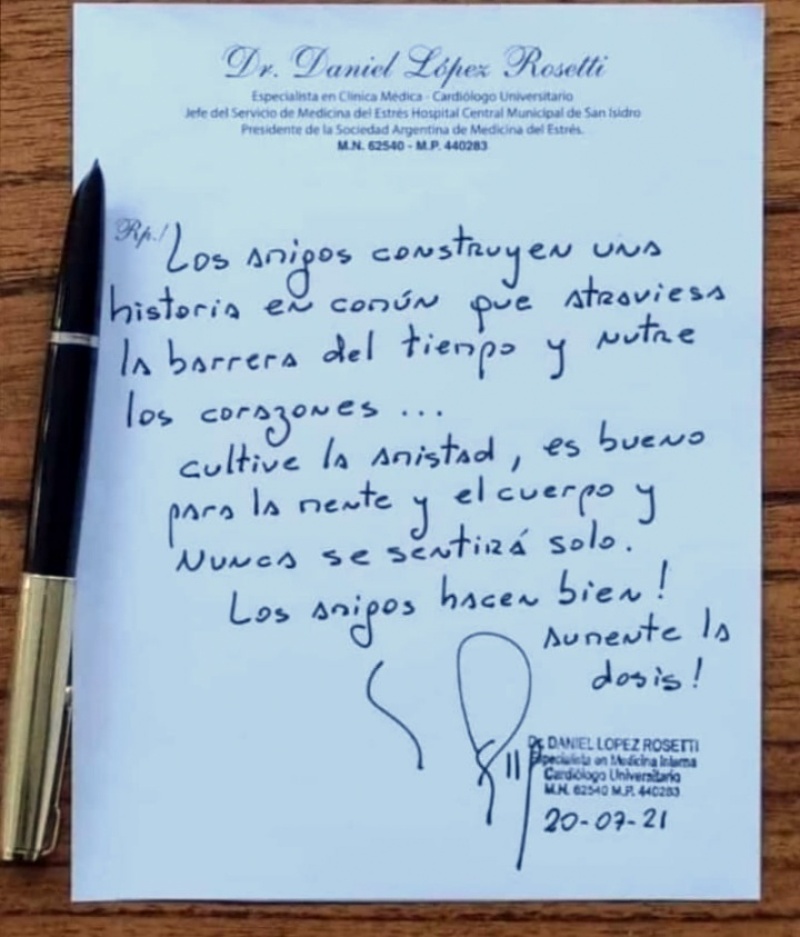 Dr. Daniel López Rosetti
Especialista en Clínica Médica - Cardiólogo Universitario
Jefe del Servicio de Medicina del Estrés Hospital Central Municipal de San Isidro
Presidente de la Sociedad Argentina de Medicina del Estrés.
M.N. 62540 - M.P. 440283
Rp./ Los amigos construyen una
historia en común que atraviesa
la barrera del tiempo y nutre
los corazones ...
cultive la amistad, es bueno
para la mente y el cuerpo y
nunca se sentirá solo.
Los amigos hacen bien!
aumente la
dosis!
Dr. DANIEL LOPEZ ROSETTI
Especialista en Medicina Interna
Cardiólogo Universitario
M.N. 62540 M.P. 440283
20-07-21